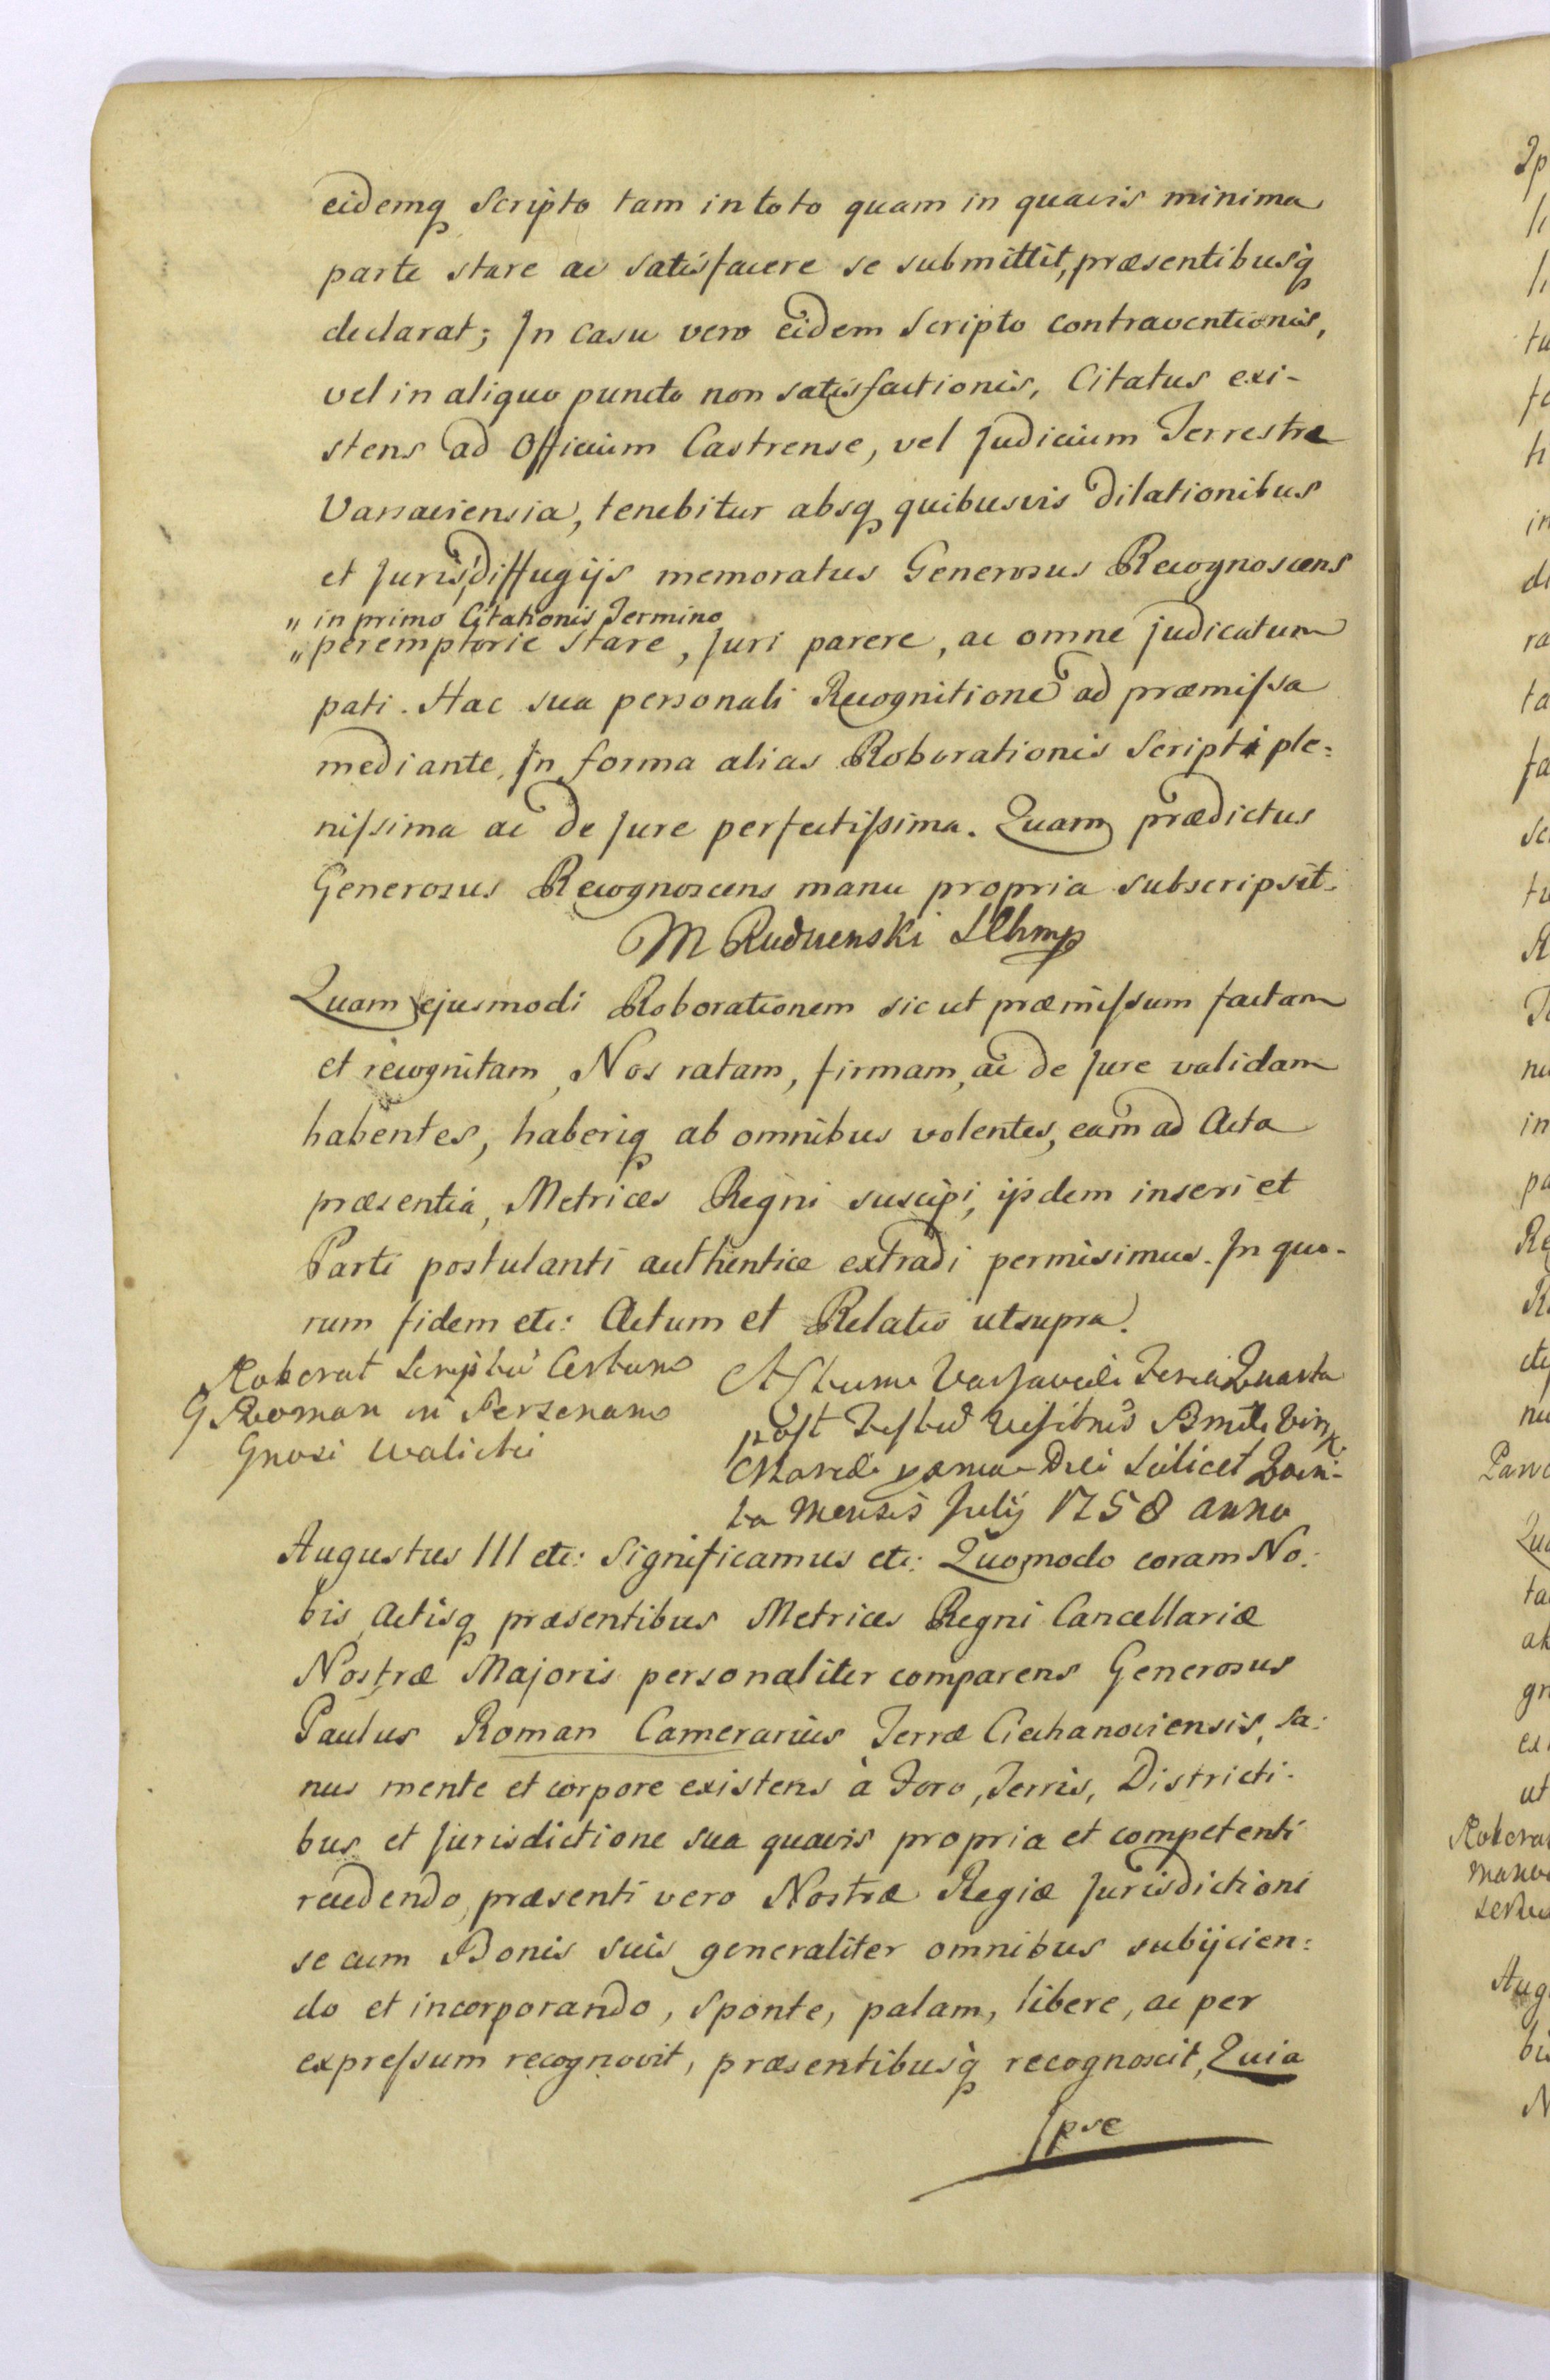 eidemq scripto tam in toto quam in quavis minima
parte stare ac satisfacere se submittit, præsentibusq
declarat; In casu vero eidem scripto contraventionis,
vel in aliquo puncto non satisfactionis, Citatus exi-
stens ad Officium Castrense, vel Judicium Terrestre
Varsaviensia, tenebitur absq quibusvis dilationibus
et Juris diffugijs memoratus Generosus Recognoscens
„ in primo Citationis Termino
„ peremptorie stare, Juri parere, ac omne judicatum
pati. Hac sua personali Recognitione ad præmissa
mediante, In forma alias Roborationis Scripti ple:
nissima ac de Jure perfectissima. Quam prædictus
Generosus Recognoscens manu propria subscripsit.
M Rudnenski
Quam ejusmodi Roborationem sic ut præmissum factam
et recognitam, Nos ratam, firmam, ac de Jure validam
habentes, haberiq ab omnibus volentes, eam ad Acta
præsentia, Metrices Regni suscipi, ijsdem inseri et
Parti postulanti authentice extradi permisimus. In quo-
rum fidem etc: Actum et Relatio ut supra.
Roborat Scriptũ Certum
G Roman in Personam
Gnosi Walicki
Actum Varsaviæ Feria Quarta
post Festũ Visitnis Bmæ Virg
Mariæ Die scilicet Quin-
ta Mensis Julij 1758 anno
Augustus III etc: Significamus etc: Quomodo coram No:
bis, Actisq præsentibus Metrices Regni Cancellariæ
Nostræ Majoris personaliter comparens Generosus
Paulus Roman Camerarius Terræ Ciechanoviensis, sa:
nus mente et corpore existens à Foro, Terris, Districti-
bus et Jurisdictione sua quavis propria et competenti
recedendo, præsenti vero Nostræ Regiæ Jurisdictioni
se cum Bonis suis generaliter omnibus subijcien:
do et incorporando, sponte, palam, libere, ac per
expressum recognovit, præsentibusq recognoscit, Quia
Ipse